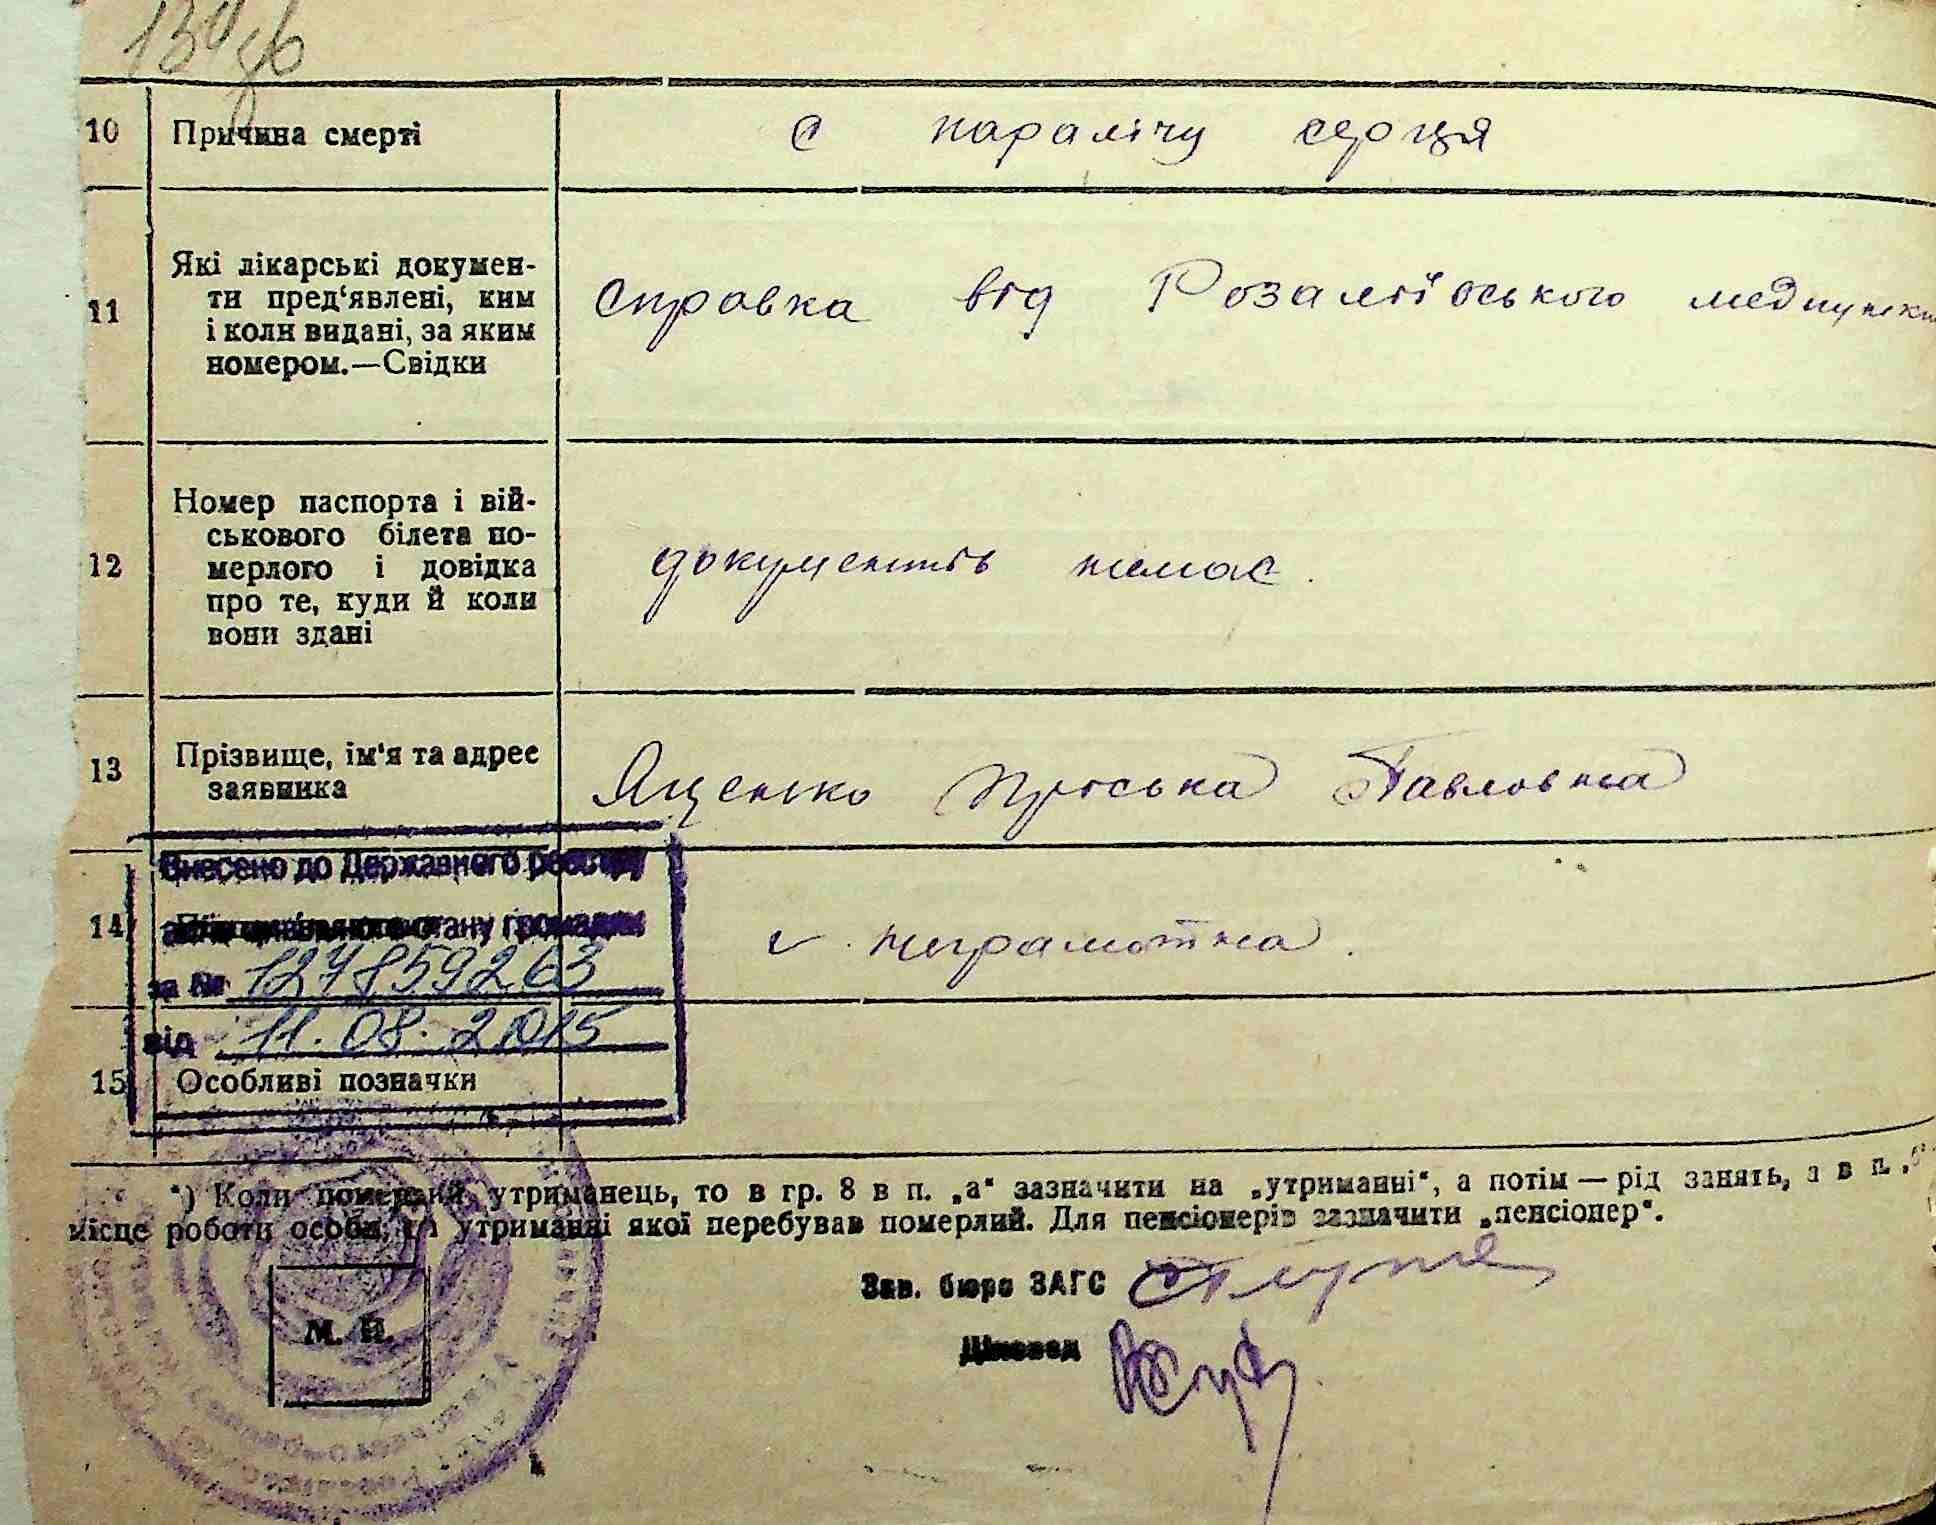 10 Причина смерті с паралічу серця
Які лікарські докумен-
11 ти пред'явлені, ким справка від Розаліївського медпункт
і коли видані, за яким
номером.—Свідки
Номер паспорта і вій-
ськового білета по-
12 мерлого і довідка документів немає.
про те, куди й коли
вони здані
13 Прізвище, ім'я та адрес Яценко Пріська Павловна
заявника
Внесено до Державного реєстру
14 актів цивільного стану громадян неграмотна.
за № 127859263
від 11.08.2015
15 Особливі позначки
*) Коли померлий утриманець, то в гр. 8 в п. „а" зазначити на „утриманні", а потім — рід занять, а в п. „б"
місце роботи особи, на утриманні якої перебував померлий. Для пенсіонерів зазначити „пенсіонер".
Зав. бюро ЗАГС
М. П.
Діловод